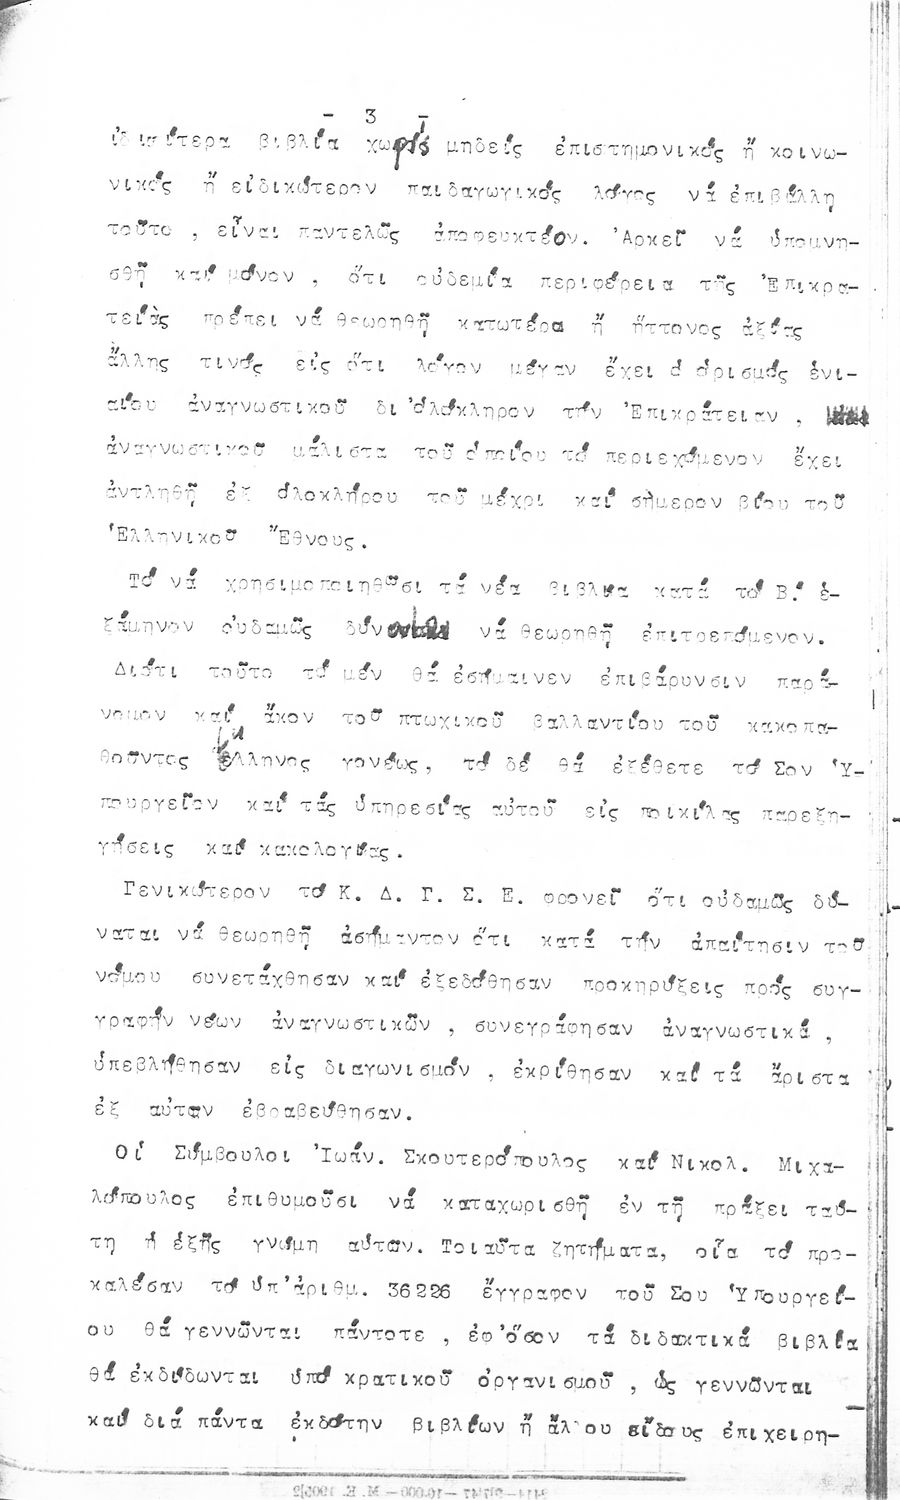 - 3 -
ἰδιαίτερα βιβλία χωρίς μηδείς ἐπιστημονικός ἤ κοινω-
νικός ἤ εἰδικώτερον παιδαγωγικός λόγος νά ἐπιβάλλη
τοῦτο , εἶναι παντελῶς ἀποφευκτέον. Ἀρκεῖ νά ὑπομνη-
σθῇ καί μόνον , ὅτι οὐδεμία περιφέρεια τῆς Ἐπικρα-
τείας πρέπει νά θεωρηθῇ κατωτέρα ἤ ἥττονος ἀξίας
ἄλλης τινός εἰς ὅτι λόγον μέγαν ἔχει ὁ ὁρισμός ἑνι-
αίου ἀναγνωστικοῦ δι'ὁλόκληρον τήν Ἐπικράτειαν ,
ἀναγνωστικοῦ μάλιστα τοῦ ὁποίου τό περιεχόμενον ἔχει
ἀντληθῇ ἐξ ὁλοκλήρου τοῦ μέχρι καί σήμερον βίου τοῦ
Ἑλληνικοῦ Ἔθνους.
Τό νά χρησιμοποιηθῶσι τά νέα βιβλία κατά τό Β.' ἑ-
ξάμηνον οὐδαμῶς νά θεωρηθῇ ἐπιτρεπόμενον.
Διότι τοῦτο τό μέν θά ἐσήμαινεν ἐπιβάρυνσιν παρά-
νομον καί ἄκον τοῦ πτωχικοῦ βαλλαντίου τοῦ κακοπα-
θοῦντος Ἕλληνος γονέως, τό δέ θά ἐξέθετε τό Σον Ὑ-
πουργεῖον καί τάς ὑπηρεσίας αὐτοῦ εἰς ποικίλας παρεξη-
γήσεις καί κακολογίας.
Γενικώτερον τό Κ. Δ. Γ. Σ. Ε. φρονεῖ ὅτι οὐδαμῶς δύ-
ναται νά θεωρηθῇ ἀσήμαντον ὅτι κατά τήν ἀπαίτησιν τοῦ
νόμου συνετάχθησαν καί ἐξεδόθησαν προκηρύξεις πρός συγ-
γραφήν νέων ἀναγνωστικῶν , συνεγράφησαν ἀναγνωστικά ,
ὑπεβλήθησαν εἰς διαγωνισμόν , ἐκρίθησαν καί τά ἄριστα
ἐξ αὐτῶν ἐβραβεύθησαν.
Οἱ Σύμβουλοι Ἰωάν. Σκουτερόπουλος καί Νικολ. Μιχα-
λόπουλος ἐπιθυμοῦσι νά καταχωρισθῇ ἐν τῇ πράξει ταύ-
τη ἡ ἑξῆς γνώμη αὐτῶν. Τοιαῦτα ζητήματα, οἷα τό προ-
καλέσαν τό ὑπ'ἀριθμ. 36226 ἔγγραφον τοῦ Σου Ὑπουργεί-
ου θά γεννῶνται πάντοτε , ἐφ'ὅσον τά διδακτικά βιβλία
θά ἐκδίδωνται ὑπό κρατικοῦ ὀργανισμοῦ , ὡς γεννῶνται
καί διά πάντα ἐκδότην βιβλίων ἤ ἄλλου εἴδους ἐπιχειρη-